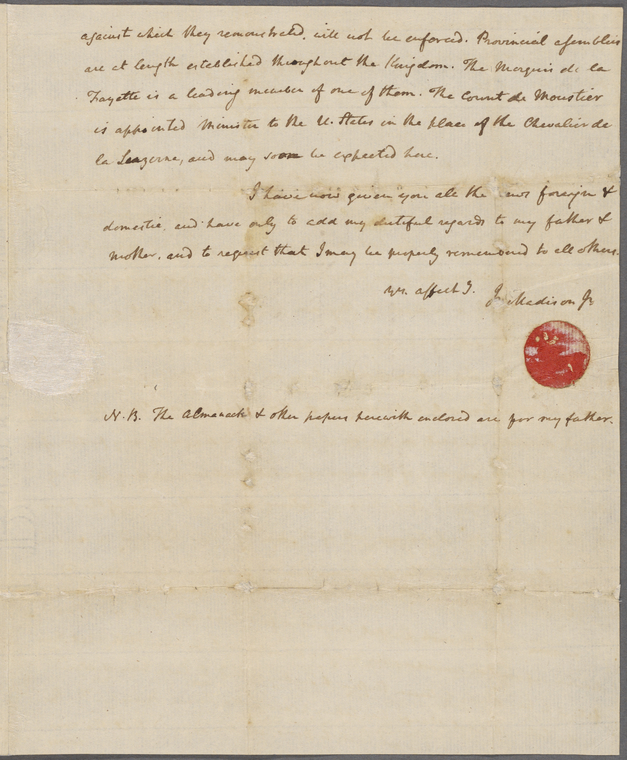 against which they remonstrated, will not be enforced. Provincial assemblies
are at length established throughout the Kingdom. The Marquis de la
Fayette is a leading member of one of them. The Count de Moustier
is appointed Minister to the U. States in the place of the Chevalier de
la Luzerne, and may soon be expected here.
I have now given you all the news foreign &
domestic, and have only to add my dutiful regards to my father &
mother, and to request that I may be properly remembered to all others.
Yrs. affecty.
Js. Madison Jr
N.B. The Almanack & other papers herewith enclosed are for my father.